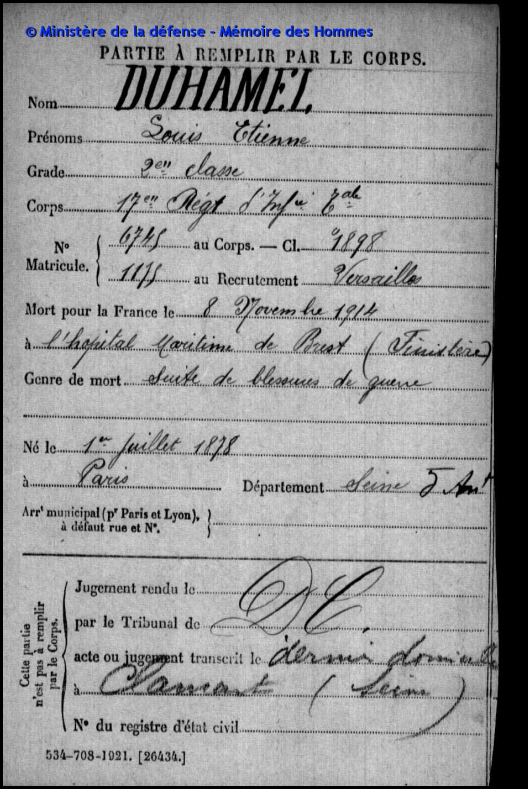 © Ministère de la défense - Mémoire des Hommes
PARTIE À REMPLIR PAR LE CORPS.
Nom DUHAMEL
Prénoms Louis Etienne
Grade 2en classe
Corps 17en Régt d'Infie Tale
N° Matricule. 6745 au Corps. — Cl. 1898
1175 au Recrutement Versailles
Mort pour la France le 8 Novembre 1914
à l'hopital Maritime de Brest (Finistère)
Genre de mort Suite de blessures de guerre
Né le 1er Juillet 1878
à Paris Département Seine 5 Art
Arrt municipal (pr Paris et Lyon),
à défaut rue et N°.
Cette partie
n'est pas à remplir
par le Corps.
Jugement rendu le
par le Tribunal de D.C.
acte ou jugement transcrit le dernier domicile
à Clamart (Seine)
N° du registre d'état civil
534-708-1921. [26434.]